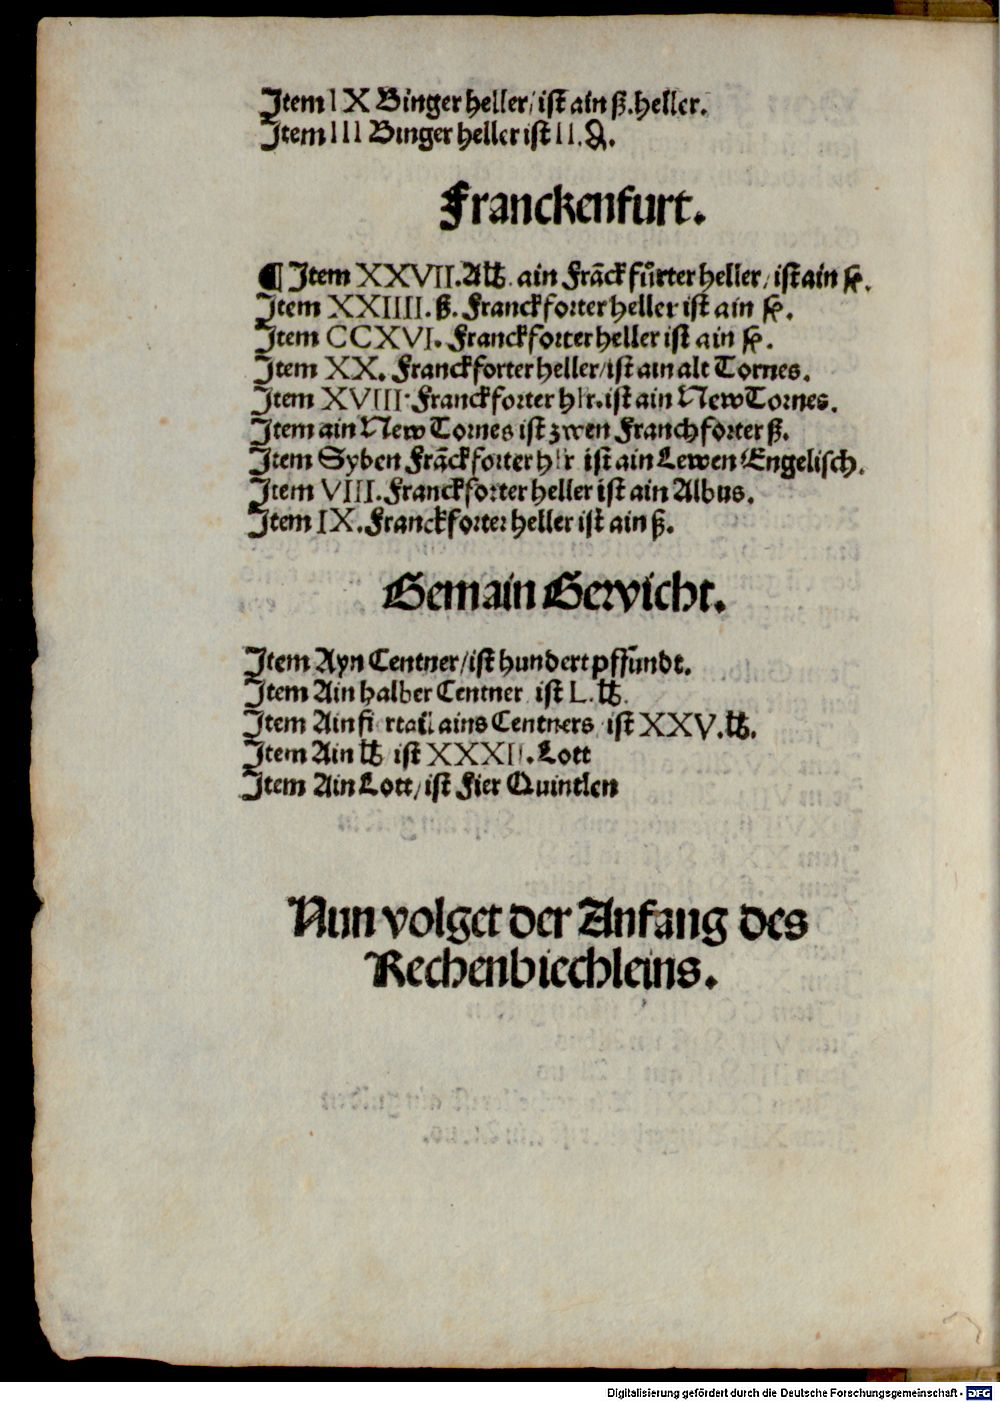 Item IX Binger heller / ist ain ß. heller.
Item III Binger heller ist II. ₰.
Franckenfurt.
¶ Item XXVII. Alb. ain Frāckfůrter heller / ist ain fl.
Item XXIIII. ß. Franckforter heller ist ain fl.
Item CCXVI. Franckforter heller ist ain fl.
Item XX. Franckforter heller / ist ain alt Tornes.
Item XVIII. Franckforter hlr. ist ain New Tornes.
Item ain New Tornes ist zwen Franchforter ß.
Item Syben Frāckforter hlr ist ain Lewen Engelisch.
Item VIII. Franckforter heller ist ain Albus.
Item IX. Franckforter heller ist ain ß.
Gemain Gewicht.
Item Ayn Centner / ist hundert pffūndt.
Item Ain halber Centner ist L. ℔.
Item Ain fi rtail ains Centners ist XXV. ℔.
Item Ain ℔ ist XXXII. Lott
Item Ain Lott / ist Fier Quintlen
Nun volget der Anfang des
Rechenbiechleins.
Digitalisierung gefördert durch die Deutsche Forschungsgemeinschaft - DFG